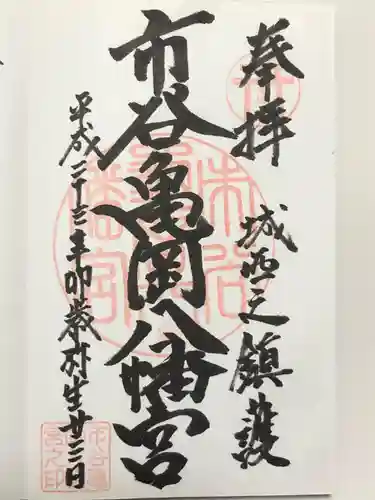 奉拝
城西之鎮護
市谷亀岡八幡宮
平成二十三年卯歳弥生廿二日